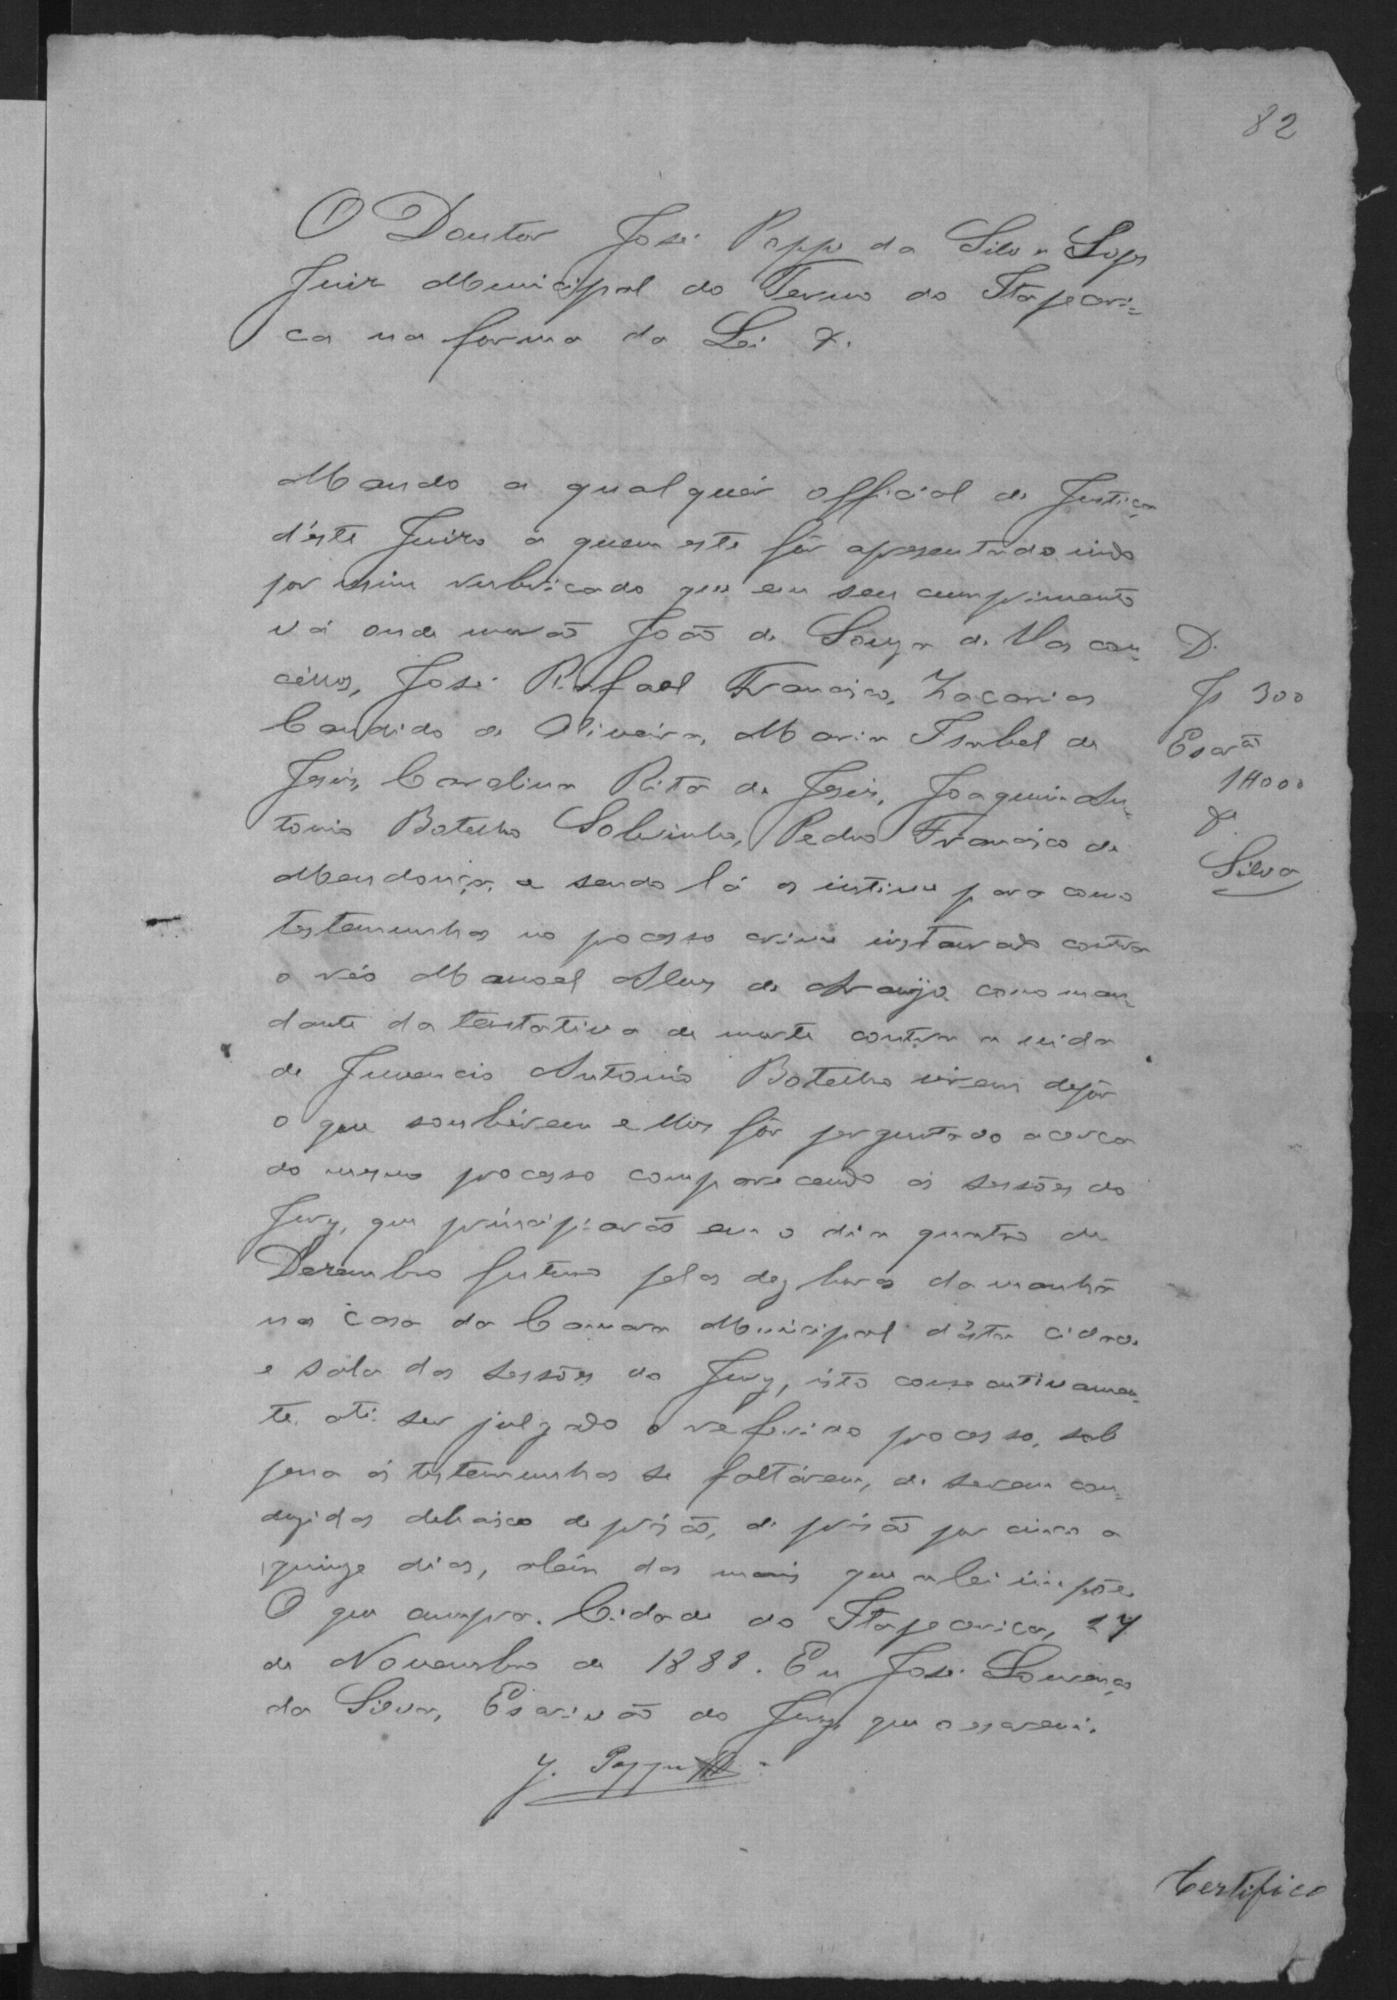 82
O Doutor José Poppe da Silva Lopes
Juiz Municipal do Termo do Itapeceri=
ca na forma da Lei &.
Mando a qualquér official de Justiça
d'éste Juizo a quem este fôr apresentado indo
por mim rubricado que em seu cumprimento
vá onde morão João de Souza de Vas con=
céllos, José Rafael Francisco, Zacarias
Candido de Oliveira, Maria Isabel de
Jesús, Carolina Rita de Jesús, Joaquim An=
tonio Botelho Sobrinho, Pedro Francisco de
Mendonça, e sendo lá os intime para como
testemunhas no processo crime instaurado contra
o réo Manoel Alves de Araujo como man=
dante da tentativa de morte contra a vida
de Juvencio Antonio Botelho virem depôr
o que soubérem e lhes fôr perguntado acerca
do mesmo processo comparecendo ás sessões do
Jury, que principiarão em o dia quatro de
Dezembro futuro pelas dez horas da manhã
na casa da Camara Municipal d'ésta cidade
e sala das sessões do Jury, isto consecutivamen=
te até ser julgado o referido processo, sob
pena ás testemunhas se faltárem, de serem con=
duzidas debaixo de prisão, de prisão por cinco a
quinze dias, além das mais que a lei impõe.
O que cumpra. Cidade do Itapecerica, 27
de Novembro de 1888. Eu José Lourenço
da Silva, Escrivão do Jury que o escrevi.
J. Poppe
D.
Js 300
Escrão
1$000
&
Silva
Certifico